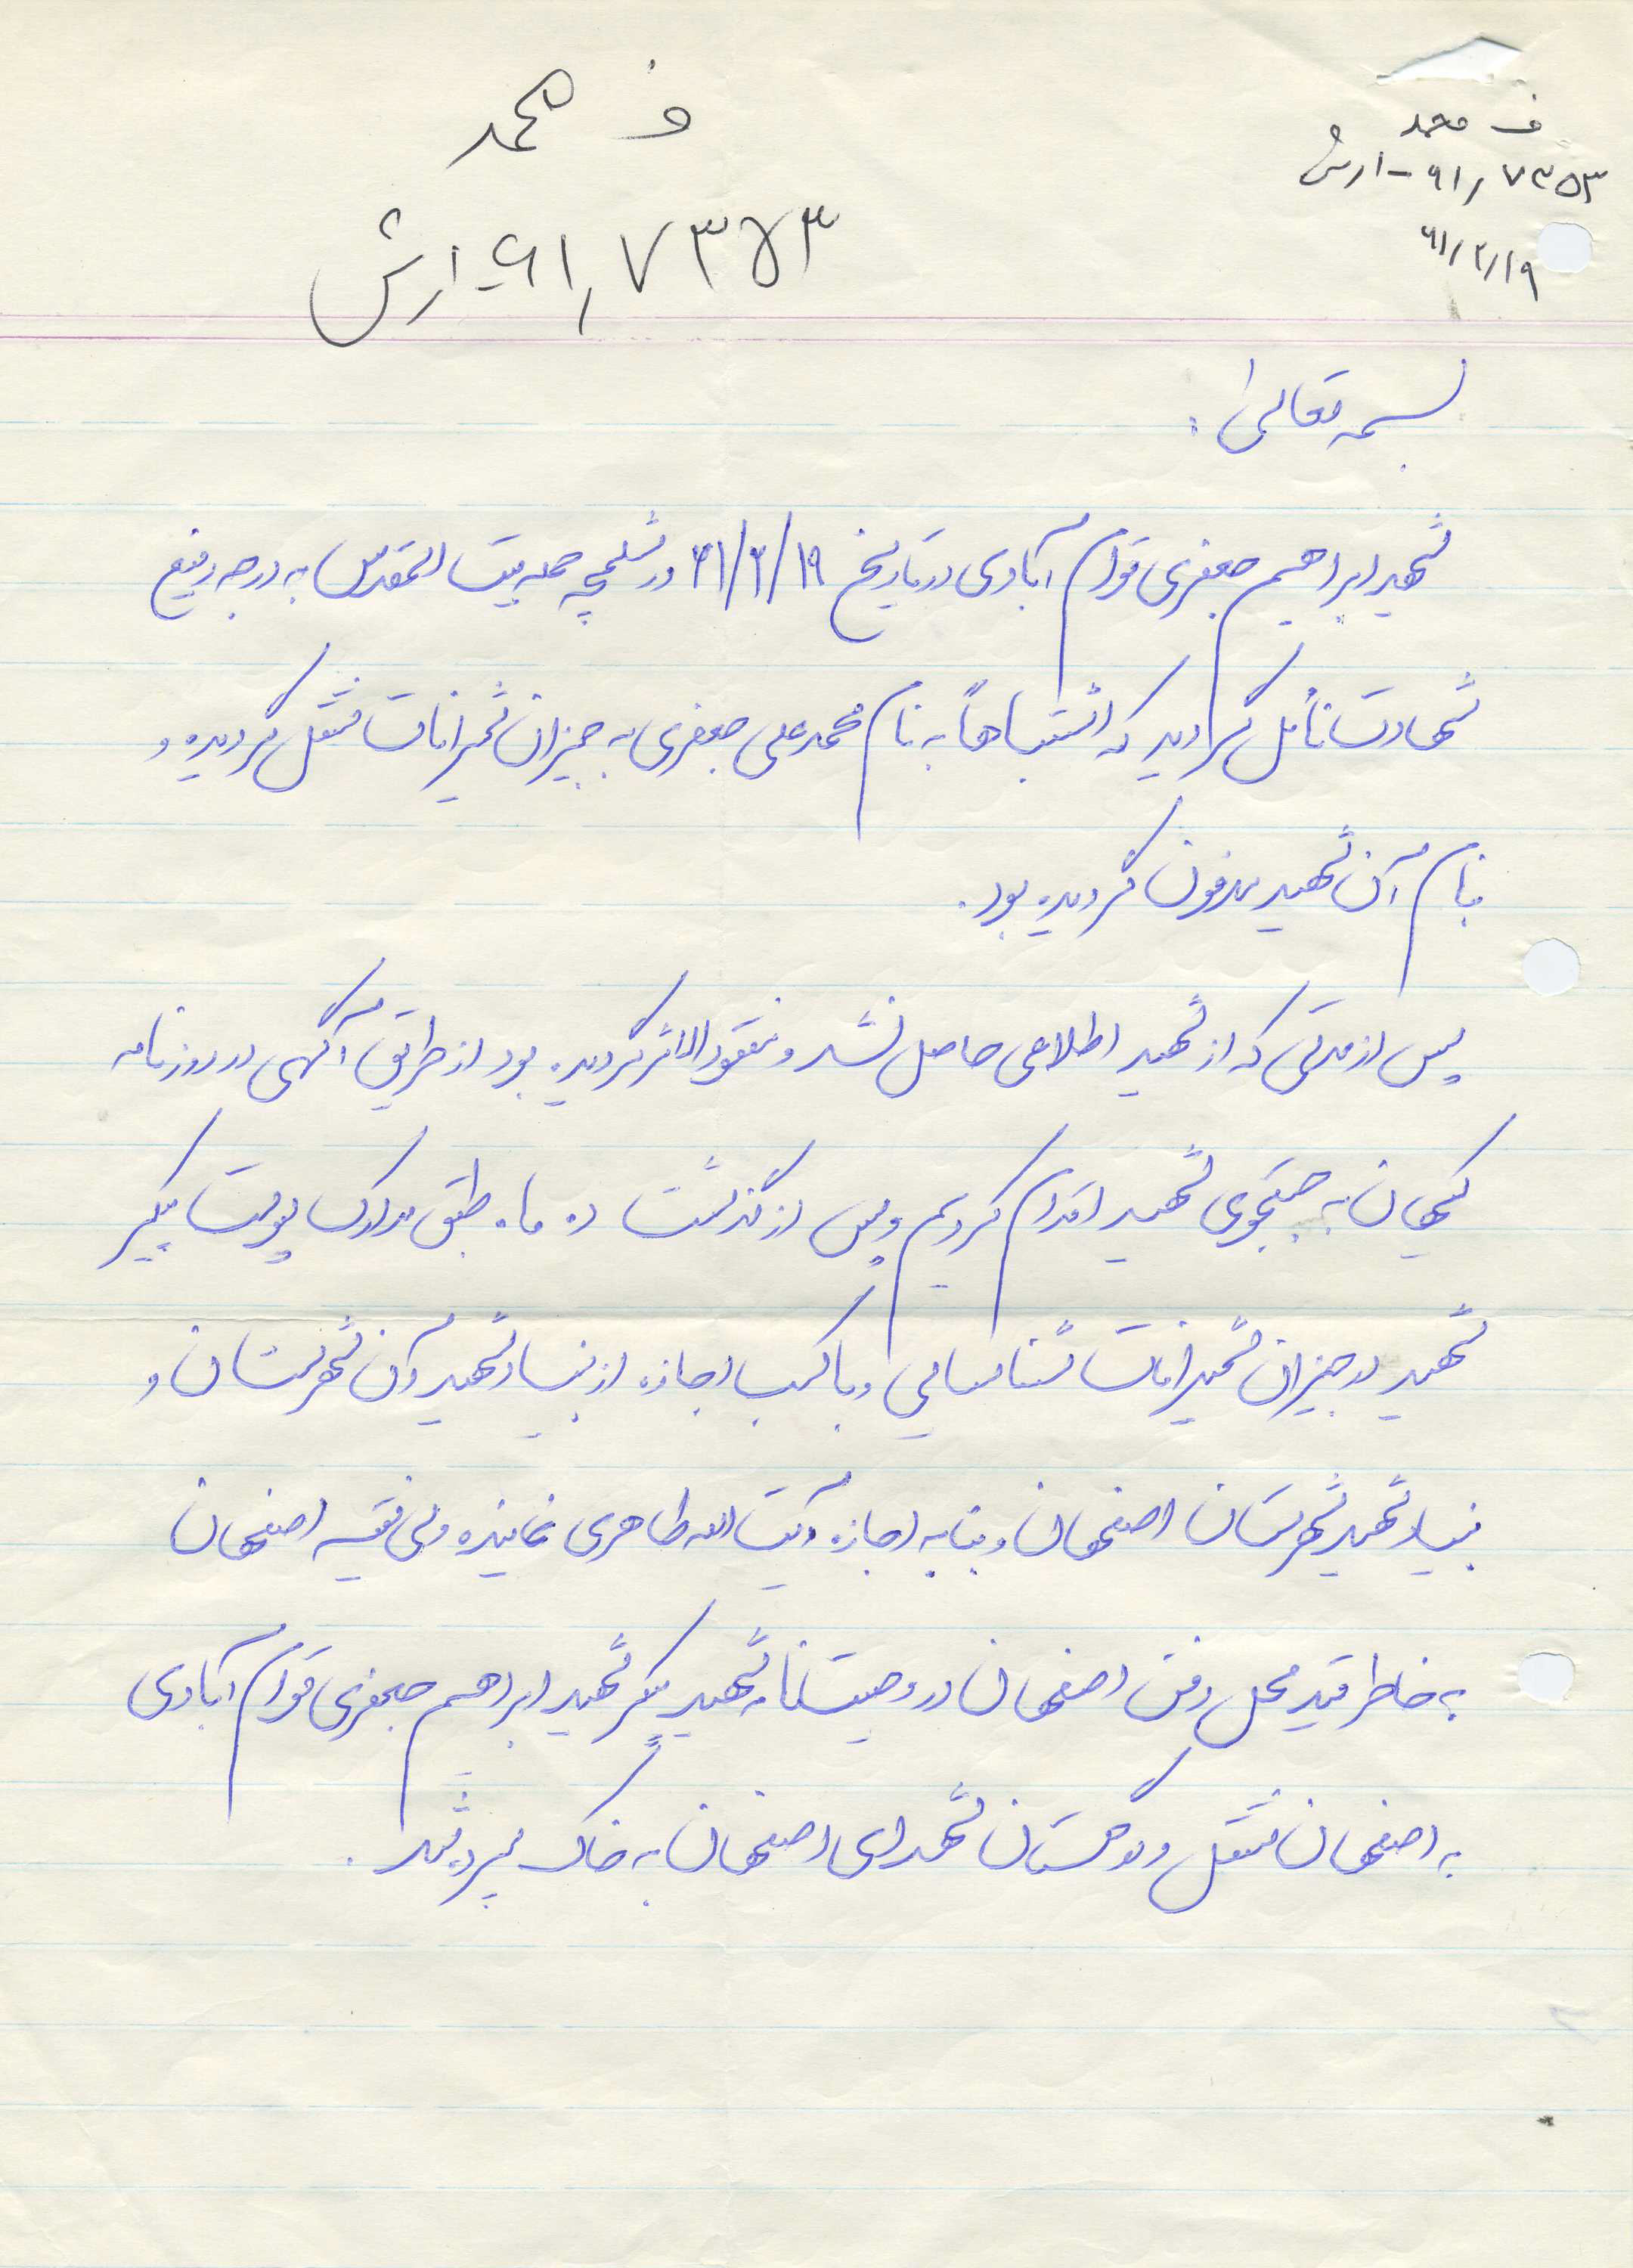 ف محمد
ف محمد
۶۱٫۷۳۵۳ - ارش
۶۱٫۷۳۵۳ - ارش
۶۱/۲/۱۹
بسمه تعالی :
شهید ابراهیم جعفری قوام آبادی در تاریخ ۶۱/۲/۱۹ در شلمچه حمله بیت المقدس به درجه رفیع
شهادت نائل گردید که اشتباهاً به نام محمدعلی جعفری به جیزان شمیرانات منتقل گردیده و
بنام آن شهید مدفون گردیده بود .
پس از مدتی که از شهید اطلاعی حاصل نشد و مفقودالاثر گردیده بود از طریق آگهی در روزنامه
کیهان به جستجوی شهید اقدام کردیم و پس از گذشت ده ماه طبق مدارک پیکر
شهید در جیزان شمیرانات شناسایی و با کسب اجازه از بنیاد شهید آن شهرستان و
بنیاد شهید شهرستان اصفهان و بنا به اجازه آیت الله طاهری نماینده ولی فقیه اصفهان
به خاطر قید محل دفن اصفهان در وصیتنامه شهید پیکر شهید ابراهیم جعفری قوام آبادی
به اصفهان منتقل و در گلستان شهدای اصفهان به خاک سپرده شد .